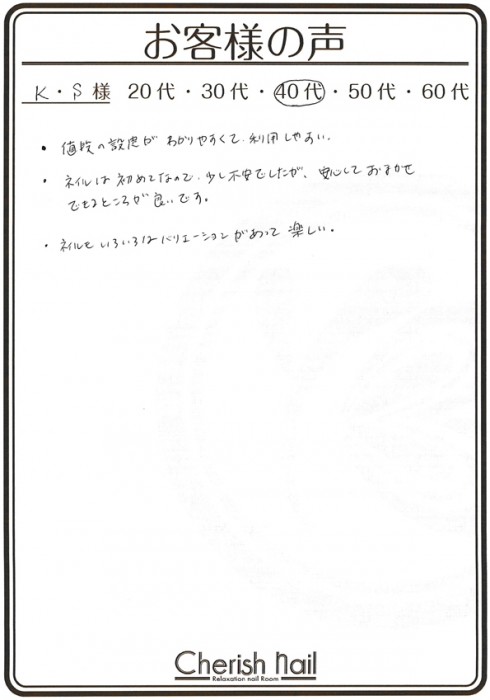 お客様の声
K・S 様 20代・30代・40代・50代・60代
・値段の設定がわかりやすくて、利用しやすい。
・ネイルは初めてなので、少し不安でしたが、安心しておまかせ
できるところが良いです。
・ネイルもいろいろなバリエーションがあって楽しい。
Cherish Nail
Relaxation nail Room